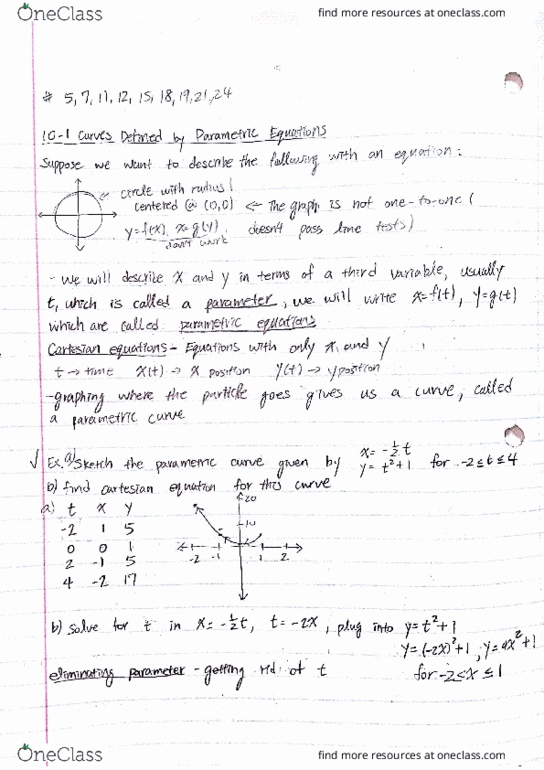 OneClass
find more resources at oneclass.com
# 5, 7, 11, 12, 15, 18, 19, 21, 24
10-1 Curves Defined by Parametric Equations
Suppose we want to describe the following with an equation:
circle with radius 1
centered @ (0,0) ← The graph is not one-to-one (
y=f(x), x=g(y) doesn't pass line tests)
don't work
- We will describe x and y in terms of a third variable, usually
t, which is called a parameter, we will write x=f(t), y=g(t)
which are called parametric equations
Cartesian equations - Equations with only x and y
t → time x(t) → x position y(t) → y position
-graphing where the particle goes gives us a curve, called
a parametric curve
√ Ex. a) Sketch the parametric curve given by x= -½t
y= t²+1 for -2≤t≤4
b) find cartesian equation for this curve
a) t x y
-2 1 5
0 0 1
2 -1 5
4 -2 17
20
10
-2 -1 1 2
b) solve for t in x= -½t, t= -2x, plug into y= t²+1
y= (-2x)²+1, y=4x²+1
eliminating parameter - getting rid of t for -2≤x≤1
OneClass
find more resources at oneclass.com